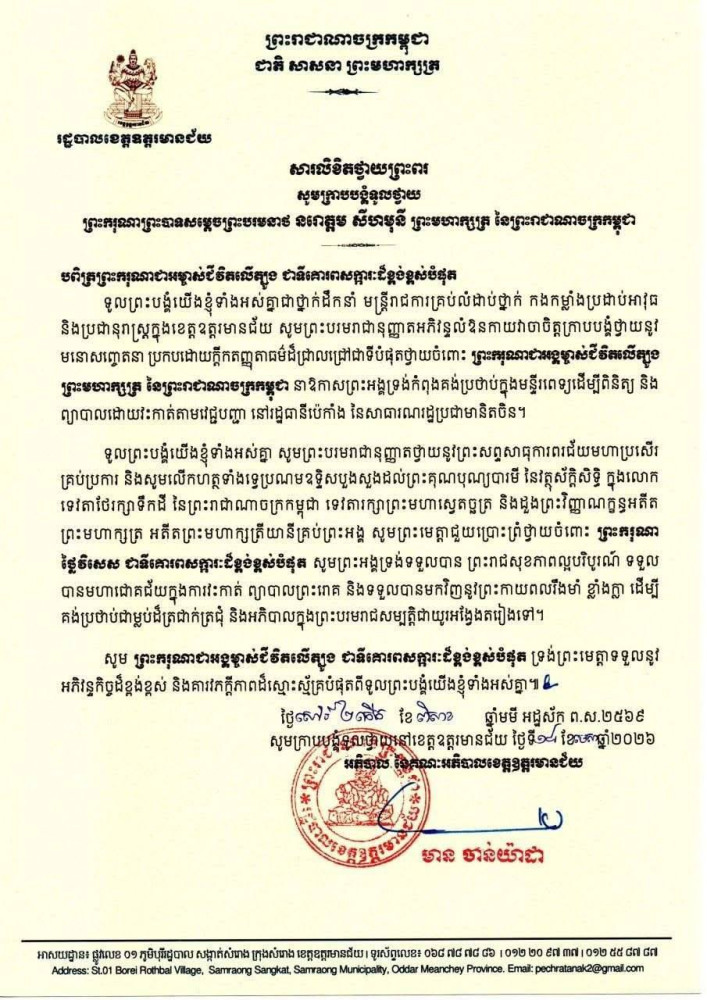 ព្រះរាជាណាចក្រកម្ពុជា
ជាតិ សាសនា ព្រះមហាក្សត្រ
រដ្ឋបាលខេត្តឧត្តរមានជ័យ
សារលិខិតថ្វាយព្រះពរ
សូមក្រាបបង្គំទូលថ្វាយ
ព្រះករុណាព្រះបាទសម្តេចព្រះបរមនាថ នរោត្តម សីហមុនី ព្រះមហាក្សត្រ នៃព្រះរាជាណាចក្រកម្ពុជា
បពិត្រព្រះករុណាជាអម្ចាស់ជីវិតលើត្បូង ជាទីគោរពសក្ការៈដ៏ខ្ពង់ខ្ពស់បំផុត
ទូលព្រះបង្គំយើងខ្ញុំទាំងអស់គ្នាជាថ្នាក់ដឹកនាំ មន្ត្រីរាជការគ្រប់លំដាប់ថ្នាក់ កងកម្លាំងប្រដាប់អាវុធ
និងប្រជានុរាស្ត្រក្នុងខេត្តឧត្តរមានជ័យ សូមព្រះបរមរាជានុញ្ញាតអភិវន្ទលំឱនកាយវាចាចិត្តក្រាបបង្គំថ្វាយនូវ
មនោសញ្ចេតនា ប្រកបដោយក្តីកតញ្ញុតាធម៌ដ៏ជ្រាលជ្រៅជាទីបំផុតថ្វាយចំពោះ ព្រះករុណាជាអង្គម្ចាស់ជីវិតលើត្បូង
ព្រះមហាក្សត្រ នៃព្រះរាជាណាចក្រកម្ពុជា នាឱកាសព្រះអង្គទ្រង់កំពុងគង់ប្រថាប់ក្នុងមន្ទីរពេទ្យដើម្បីពិនិត្យ និង
ព្យាបាលដោយវះកាត់តាមវេជ្ជបញ្ជា នៅរដ្ឋធានីប៉េកាំង នៃសាធារណរដ្ឋប្រជាមានិតចិន។
ទូលព្រះបង្គំយើងខ្ញុំទាំងអស់គ្នា សូមព្រះបរមរាជានុញ្ញាតថ្វាយនូវព្រះសព្ទសាធុការពរជ័យមហាប្រសើរ
គ្រប់ប្រការ និងសូមលើកហត្ថទាំងទ្វេប្រណមឧទ្ទិសបួងសួងដល់ព្រះគុណបុណ្យបារមី នៃវត្ថុស័ក្តិសិទ្ធិ ក្នុងលោក
ទេវតាថែរក្សាទឹកដី នៃព្រះរាជាណាចក្រកម្ពុជា ទេវតារក្សាព្រះមហាស្វេតច្ឆត្រ និងដួងព្រះវិញ្ញាណក្ខន្ធអតីត
ព្រះមហាក្សត្រ អតីតព្រះមហាក្សត្រីយានីគ្រប់ព្រះអង្គ សូមព្រះមេត្តាជួយប្រោះព្រំថ្វាយចំពោះ ព្រះករុណា
ថ្លៃវិសេស ជាទីគោរពសក្ការៈដ៏ខ្ពង់ខ្ពស់បំផុត សូមព្រះអង្គទ្រង់ទទួលបាន ព្រះរាជសុខភាពល្អបរិបូរណ៍ ទទួល
បានមហាជោគជ័យក្នុងការវះកាត់ ព្យាបាលព្រះរោគ និងទទួលបានមកវិញនូវព្រះកាយពលរឹងមាំ ខ្លាំងក្លា ដើម្បី
គង់ប្រថាប់ជាម្លប់ដ៏ត្រជាក់ត្រជុំ និងអភិបាលក្នុងព្រះបរមរាជសម្បត្តិជាយូរអង្វែងតរៀងទៅ។
សូម ព្រះករុណាជាអង្គម្ចាស់ជីវិតលើត្បូង ជាទីគោរពសក្ការៈដ៏ខ្ពង់ខ្ពស់បំផុត ទ្រង់ព្រះមេត្តាទទួលនូវ
អភិវន្ទកិច្ចដ៏ខ្ពង់ខ្ពស់ និងគារវភក្តីភាពដ៏ស្មោះស្ម័គ្របំផុតពីទូលព្រះបង្គំយើងខ្ញុំទាំងអស់គ្នា៕
ថ្ងៃ ខែ ពិសាខ ឆ្នាំមមី អដ្ឋស័ក ព.ស.២៥៦៩
សូមក្រាបបង្គំទូលថ្វាយនៅខេត្តឧត្តរមានជ័យ ថ្ងៃទី ខែ ឆ្នាំ២០២៦
អភិបាល នៃគណៈអភិបាលខេត្តឧត្តរមានជ័យ
ព្រះរាជាណាចក្រកម្ពុជា
រដ្ឋបាលខេត្តឧត្តរមានជ័យ
មាន ចាន់យ៉ាដា
អាសយដ្ឋាន៖ ផ្លូវលេខ ០១ ភូមិបុរីរដ្ឋបាល សង្កាត់សំរោង ក្រុងសំរោង ខេត្តឧត្តរមានជ័យ | ទូរស័ព្ទលេខ៖ ០៦៨ ៧៨ ៧៨ ៨៦ | ០១២ ២០ ៩៧ ៣៧ | ០១២ ៥៥ ៨៧ ៨៧
Address: St.01 Borei Rothbal Village, Samraong Sangkat, Samraong Municipality, Oddar Meanchey Province. Email: pechratanak2@gmail.com